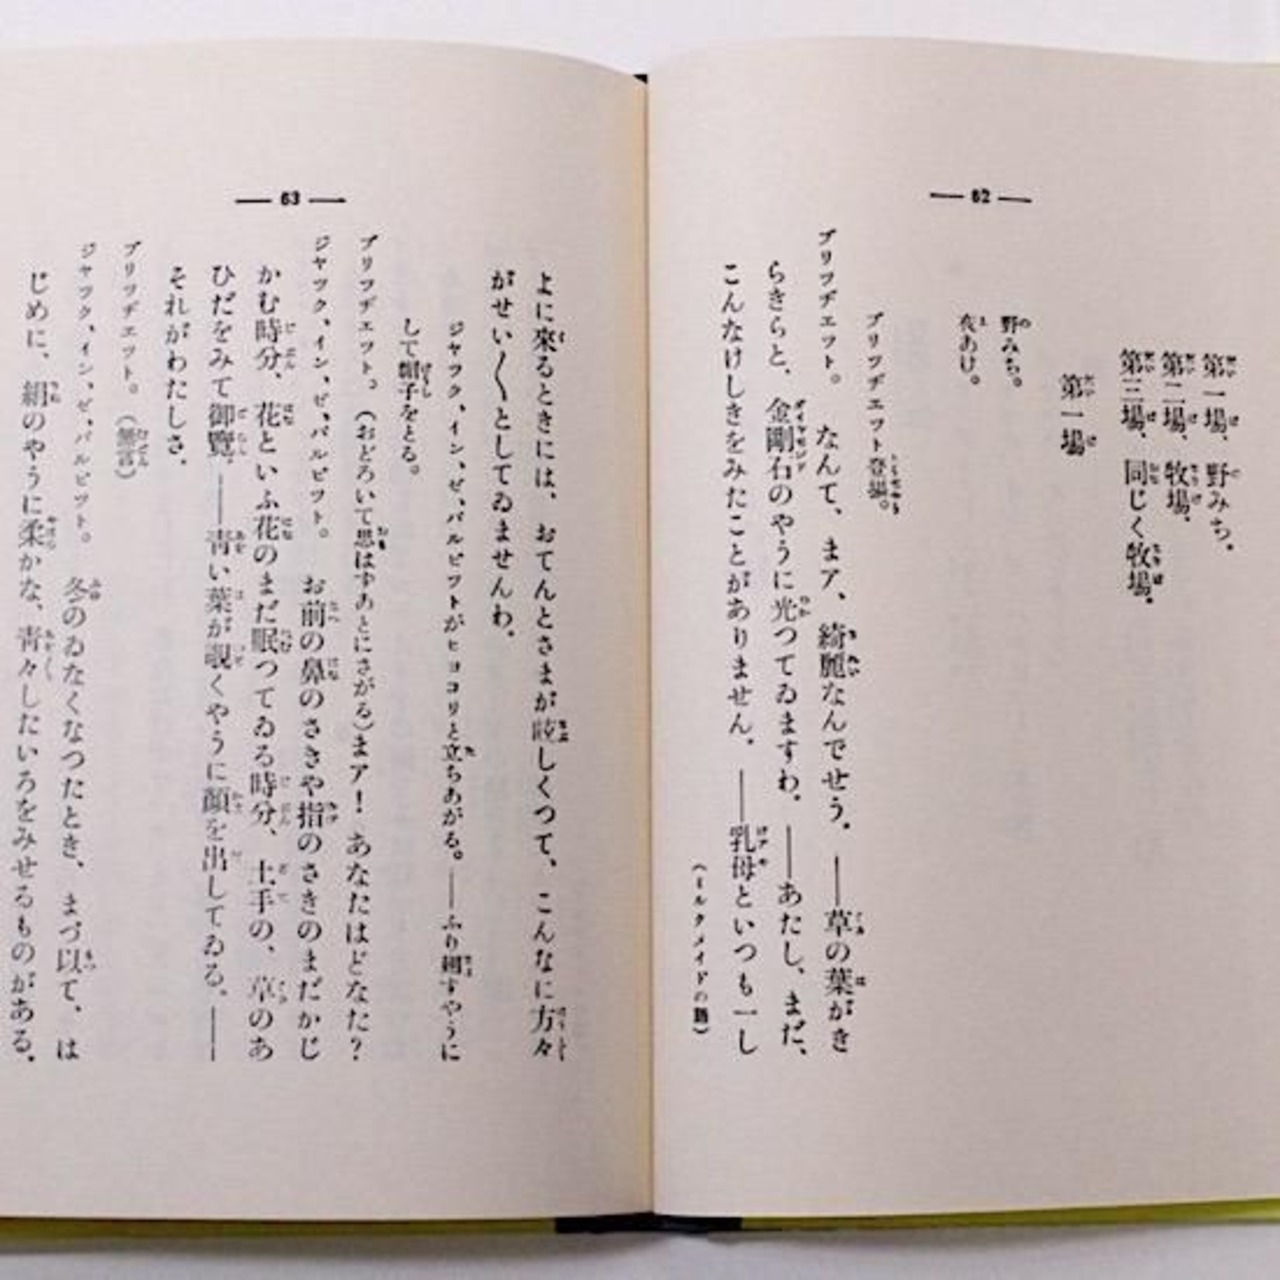 — 62 —
第一場、野みち。
第二場、牧場、
第三場、同じく牧場。
第一場
野みち。
夜あけ。
ブリツヂエツト登場。
ブリツヂエツト。 なんて、まア、綺麗なんでせう。――草の葉がき
らきらと、金剛石のやうに光つてゐますわ。――あたし、まだ、
こんなけしきをみたことがありません。――乳母といつも一し
(ミルクメイドの路)
— 63 —
よに來るときには、おてんとさまが眩しくつて、こんなに方々
がせい〱としてゐませんわ。
ジヤツク、イン、ゼ、パルピツトがヒヨコリと立ちあがる。――ふり翻すやうに
して帽子をとる。
ブリツヂエツト。(おどろいて思はずあとにさがる)まア! あなたはどなた?
ジヤツク、イン、ゼ、パルピツト。 お前の鼻のさきや指のさきのまだかじ
かむ時分、花といふ花のまだ眠つてゐる時分、土手の、草のあ
ひだをみて御覽、――青い葉が覗くやうに顏を出してゐる。――
それがわたしさ。
ブリツヂエツト。(無言)
ジヤツク、イン、ゼ、パルピツト。 冬のゐなくなつたとき、まづ以て、は
じめに、絹のやうに柔かな、青々したいろをみせるものがある。